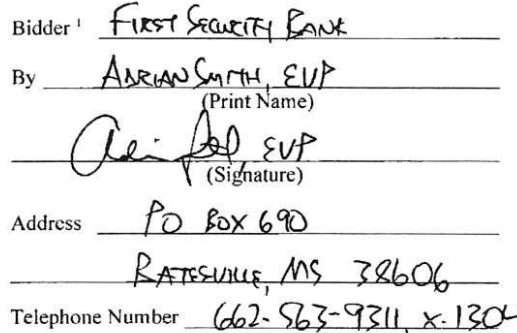 Bidder ¹ FIRST SECURITY BANK
By ADRIAN SMITH, EVP
(Print Name)
EVP
(Signature)
Address PO BOX 690
BATESVILLE, MS 38606
Telephone Number 662-563-9311, X-1304